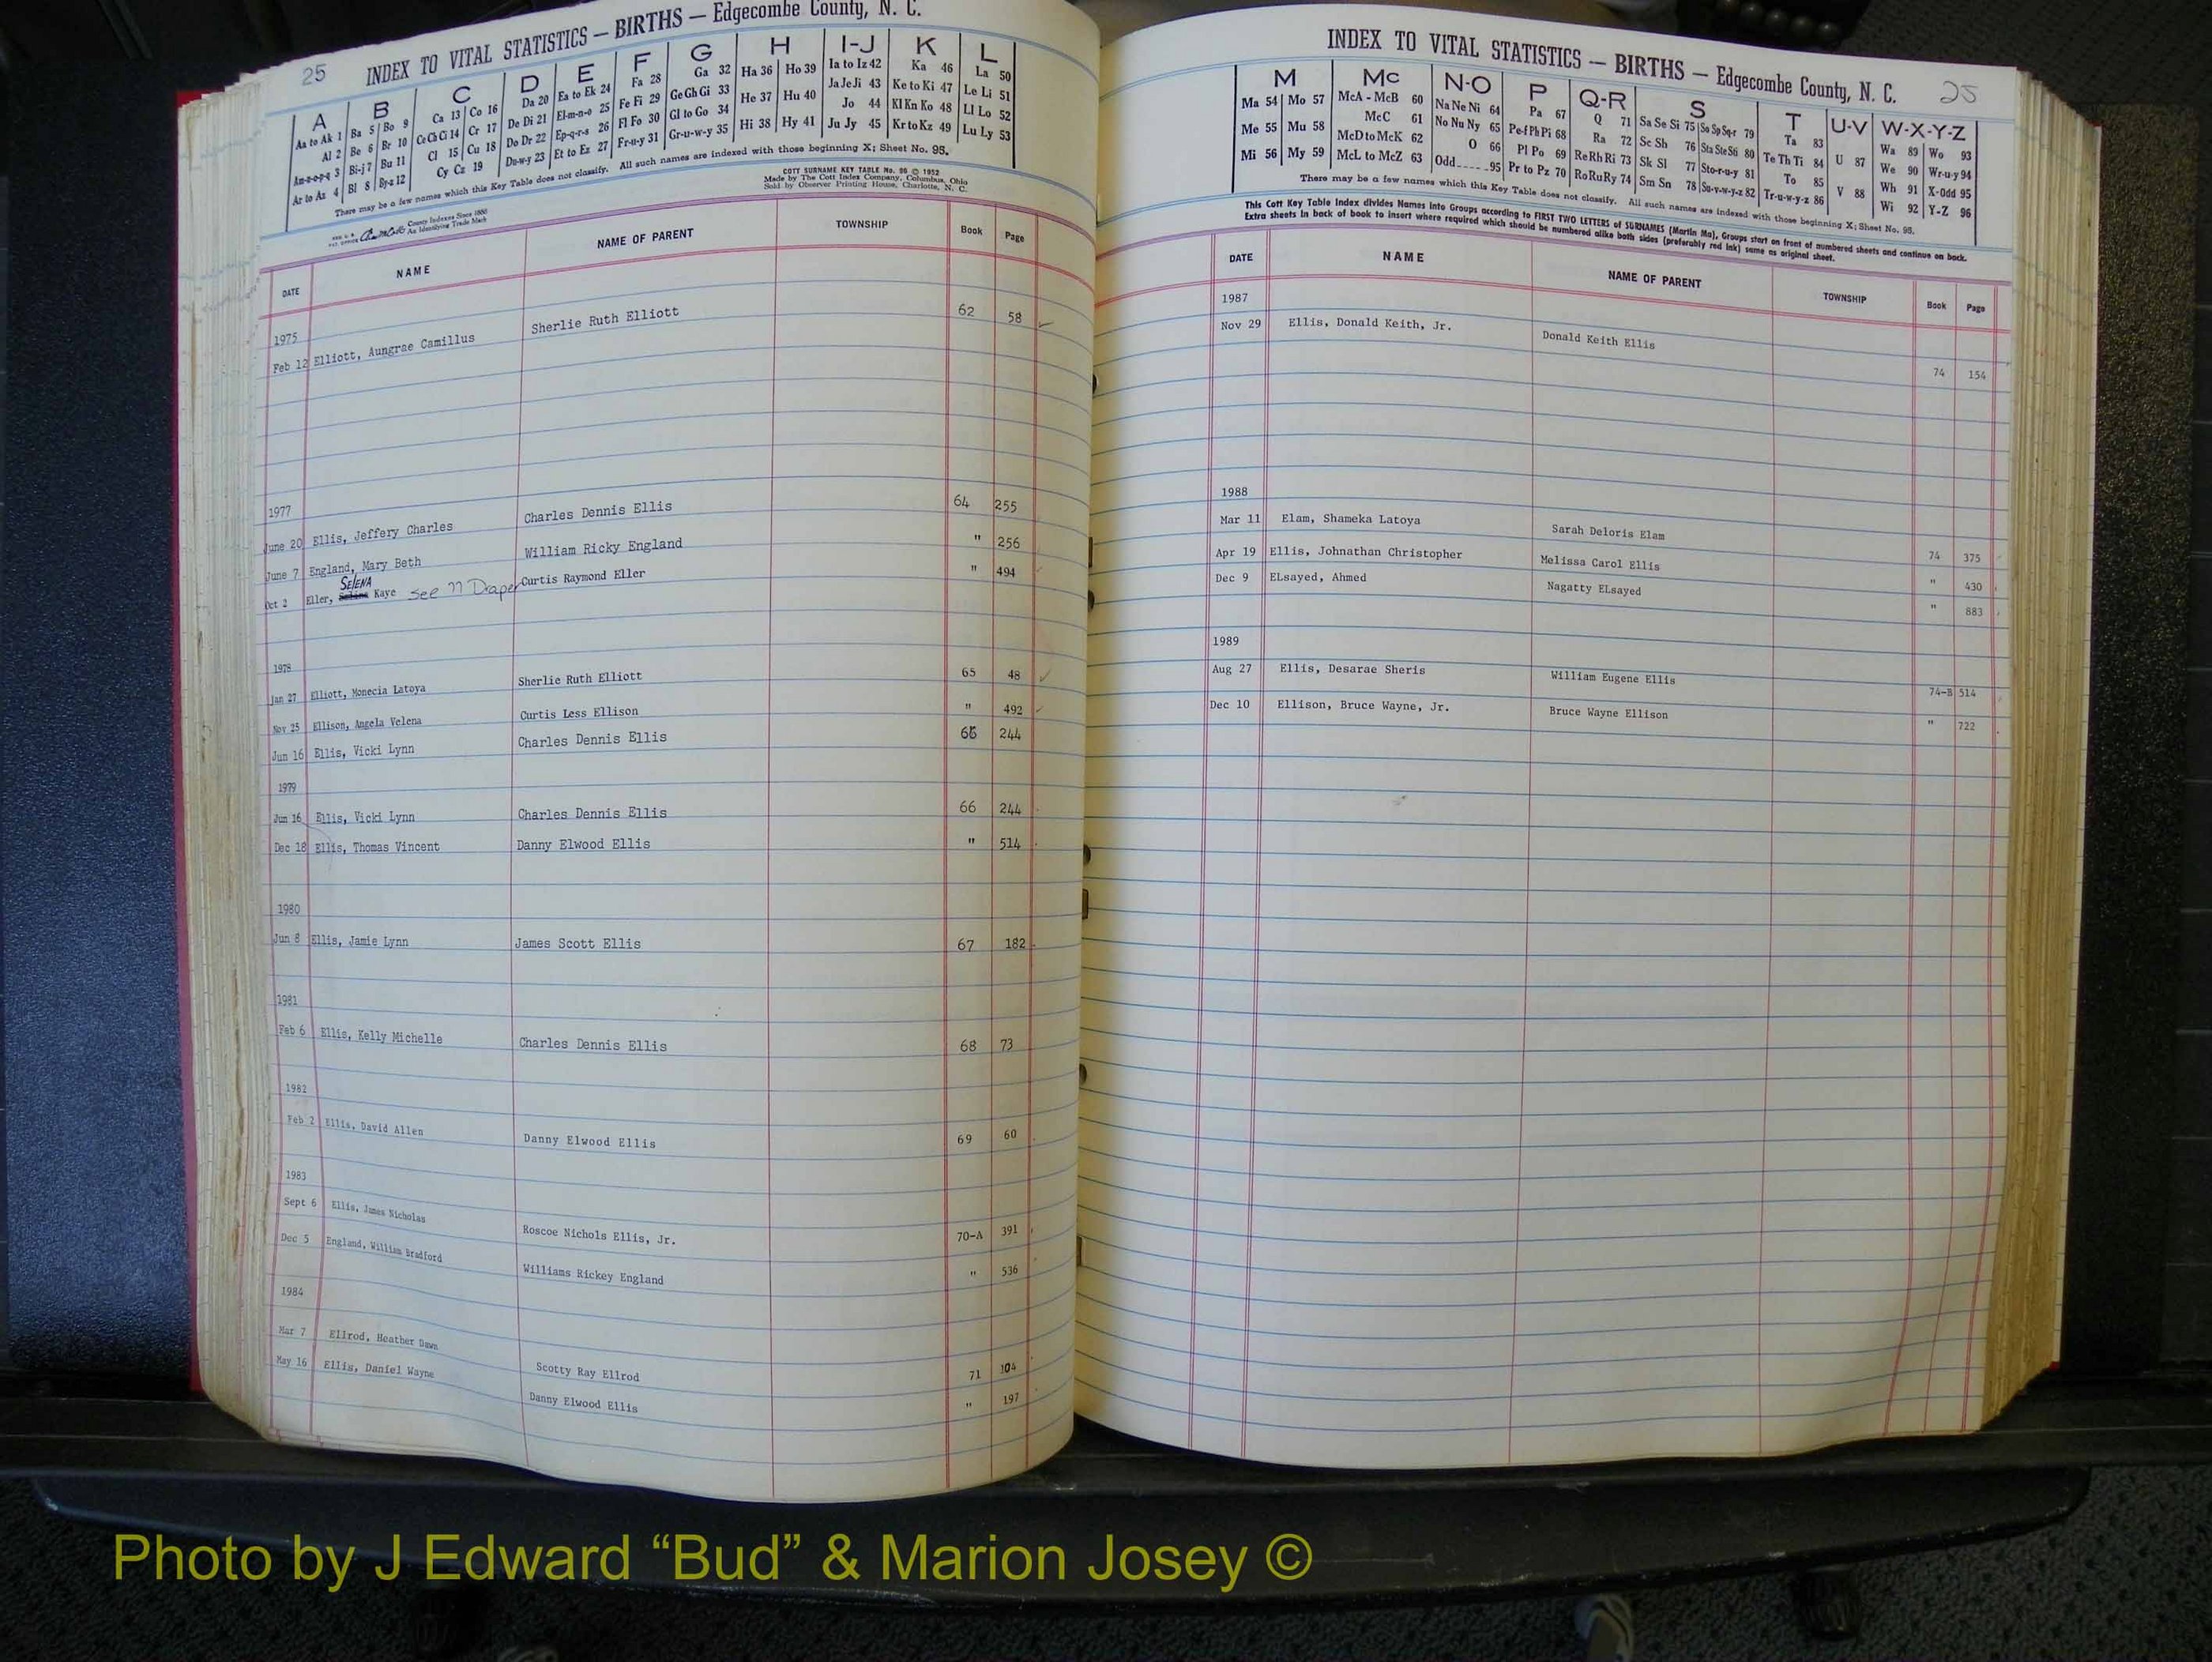 25 INDEX TO VITAL STATISTICS — BIRTHS — Edgecombe County, N. C.
A B C D E F G H I-J K L
Aa to Ak 1 Ba 5 Bo 9 Ca 13 Co 16 Da 20 Ea to Ek 24 Fa 28 Ga 32 Ha 36 Ho 39 Ia to Iz 42 Ka 46 La 50
Al 2 Be 6 Br 10 Ce Ch Ci 14 Cr 17 De Di 21 El-m-n-o 25 Fe Fi 29 Ge Gh Gi 33 He 37 Hu 40 Ja Je Ji 43 Ke to Ki 47 Le Li 51
Am-n-o-p-q 3 Bi-j 7 Bu 11 Cl 15 Cu 18 Do Dr 22 Ep-q-r-s 26 Fl Fo 30 Gl to Go 34 Hi 38 Hy 41 Jo 44 Kl Kn Ko 48 Ll Lo 52
Ar to Az 4 Bl 8 By-z 12 Cy Cz 19 Du-w-y 23 Et to Ez 27 Fr-u-y 31 Gr-u-w-y 35 Ju Jy 45 Kr to Kz 49 Lu Ly 53
There may be a few names which this Key Table does not classify. All such names are indexed with those beginning X; Sheet No. 95.
County Indexes Since 1888
An Identifying Trade Mark
COTT SURNAME KEY TABLE No. 96 © 1952
Made by The Cott Index Company, Columbus, Ohio
Sold by Observer Printing House, Charlotte, N. C.
DATE NAME NAME OF PARENT TOWNSHIP Book Page
1975
Feb 12 Elliott, Aungrae Camillus Sherlie Ruth Elliott 62 58
1977
June 20 Ellis, Jeffery Charles Charles Dennis Ellis 64 255
June 7 England, Mary Beth William Ricky England " 256
SELENA
Oct 2 Eller, Kaye See 77 Draper Curtis Raymond Eller " 494
1978
Jan 27 Elliott, Monecia Latoya Sherlie Ruth Elliott 65 48
Nov 25 Ellison, Angela Velena Curtis Less Ellison " 492
Jun 16 Ellis, Vicki Lynn Charles Dennis Ellis 66 244
1979
Jun 16 Ellis, Vicki Lynn Charles Dennis Ellis 66 244
Dec 18 Ellis, Thomas Vincent Danny Elwood Ellis " 514
1980
Jun 8 Ellis, Jamie Lynn James Scott Ellis 67 182
1981
Feb 6 Ellis, Kelly Michelle Charles Dennis Ellis 68 73
1982
Feb 2 Ellis, David Allen Danny Elwood Ellis 69 60
1983
Sept 6 Ellis, James Nicholas Roscoe Nichols Ellis, Jr. 70-A 391
Dec 5 England, William Bradford Williams Rickey England " 536
1984
Mar 7 Ellrod, Heather Dawn Scotty Ray Ellrod 71 104
May 16 Ellis, Daniel Wayne Danny Elwood Ellis " 197
INDEX TO VITAL STATISTICS — BIRTHS — Edgecombe County, N. C. 25
M Mc N-O P Q-R S T U-V W-X-Y-Z
Ma 54 Mo 57 McA - McB 60 Na Ne Ni 64 Pa 67 Q 71 Sa Se Si 75 So Sp Sq-r 79 Ta 83 U 87 Wa 89 Wo 93
Me 55 Mu 58 McC 61 No Nu Ny 65 Pe-f Ph Pi 68 Ra 72 Sc Sh 76 Sta Ste Sti 80 Te Th Ti 84 V 88 We 90 Wr-u-y 94
Mi 56 My 59 McD to McK 62 O 66 Pl Po 69 Re Rh Ri 73 Sk Sl 77 Sto-r-u-y 81 To 85 Wh 91 X-Odd 95
McL to McZ 63 Odd-----95 Pr to Pz 70 Ro Ru Ry 74 Sm Sn 78 Su-v-w-y-z 82 Tr-u-w-y-z 86 Wi 92 Y-Z 96
There may be a few names which this Key Table does not classify. All such names are indexed with those beginning X; Sheet No. 95.
This Cott Key Table Index divides Names into Groups according to FIRST TWO LETTERS of SURNAMES (Martin Ma), Groups start on front of numbered sheets and continue on back.
Extra sheets in back of book to insert where required which should be numbered alike both sides (preferably red ink) same as original sheet.
DATE NAME NAME OF PARENT TOWNSHIP Book Page
1987
Nov 29 Ellis, Donald Keith, Jr. Donald Keith Ellis 74 154
1988
Mar 11 Elam, Shameka Latoya Sarah Deloris Elam 74 375
Apr 19 Ellis, Johnathan Christopher Melissa Carol Ellis " 430
Dec 9 ELsayed, Ahmed Nagatty ELsayed " 883
1989
Aug 27 Ellis, Desarae Sheris William Eugene Ellis 74-B 514
Dec 10 Ellison, Bruce Wayne, Jr. Bruce Wayne Ellison " 722
Photo by J Edward “Bud” & Marion Josey ©